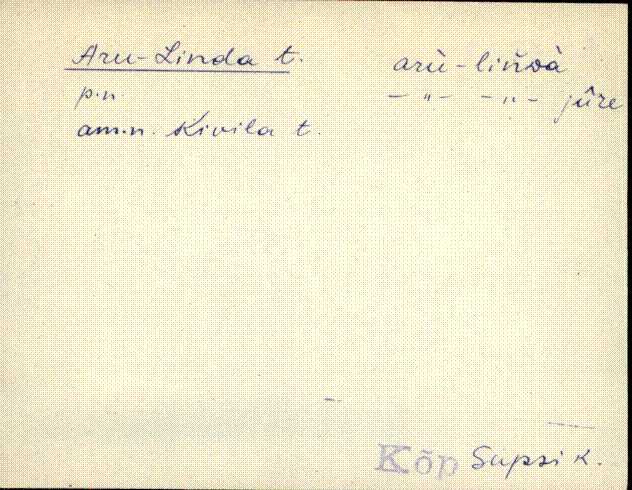 Aru-Linda t. arù-lin̆dà
p.n. -"- -"- jûre
am.n. Kivila t.
Kõp Supsi k.